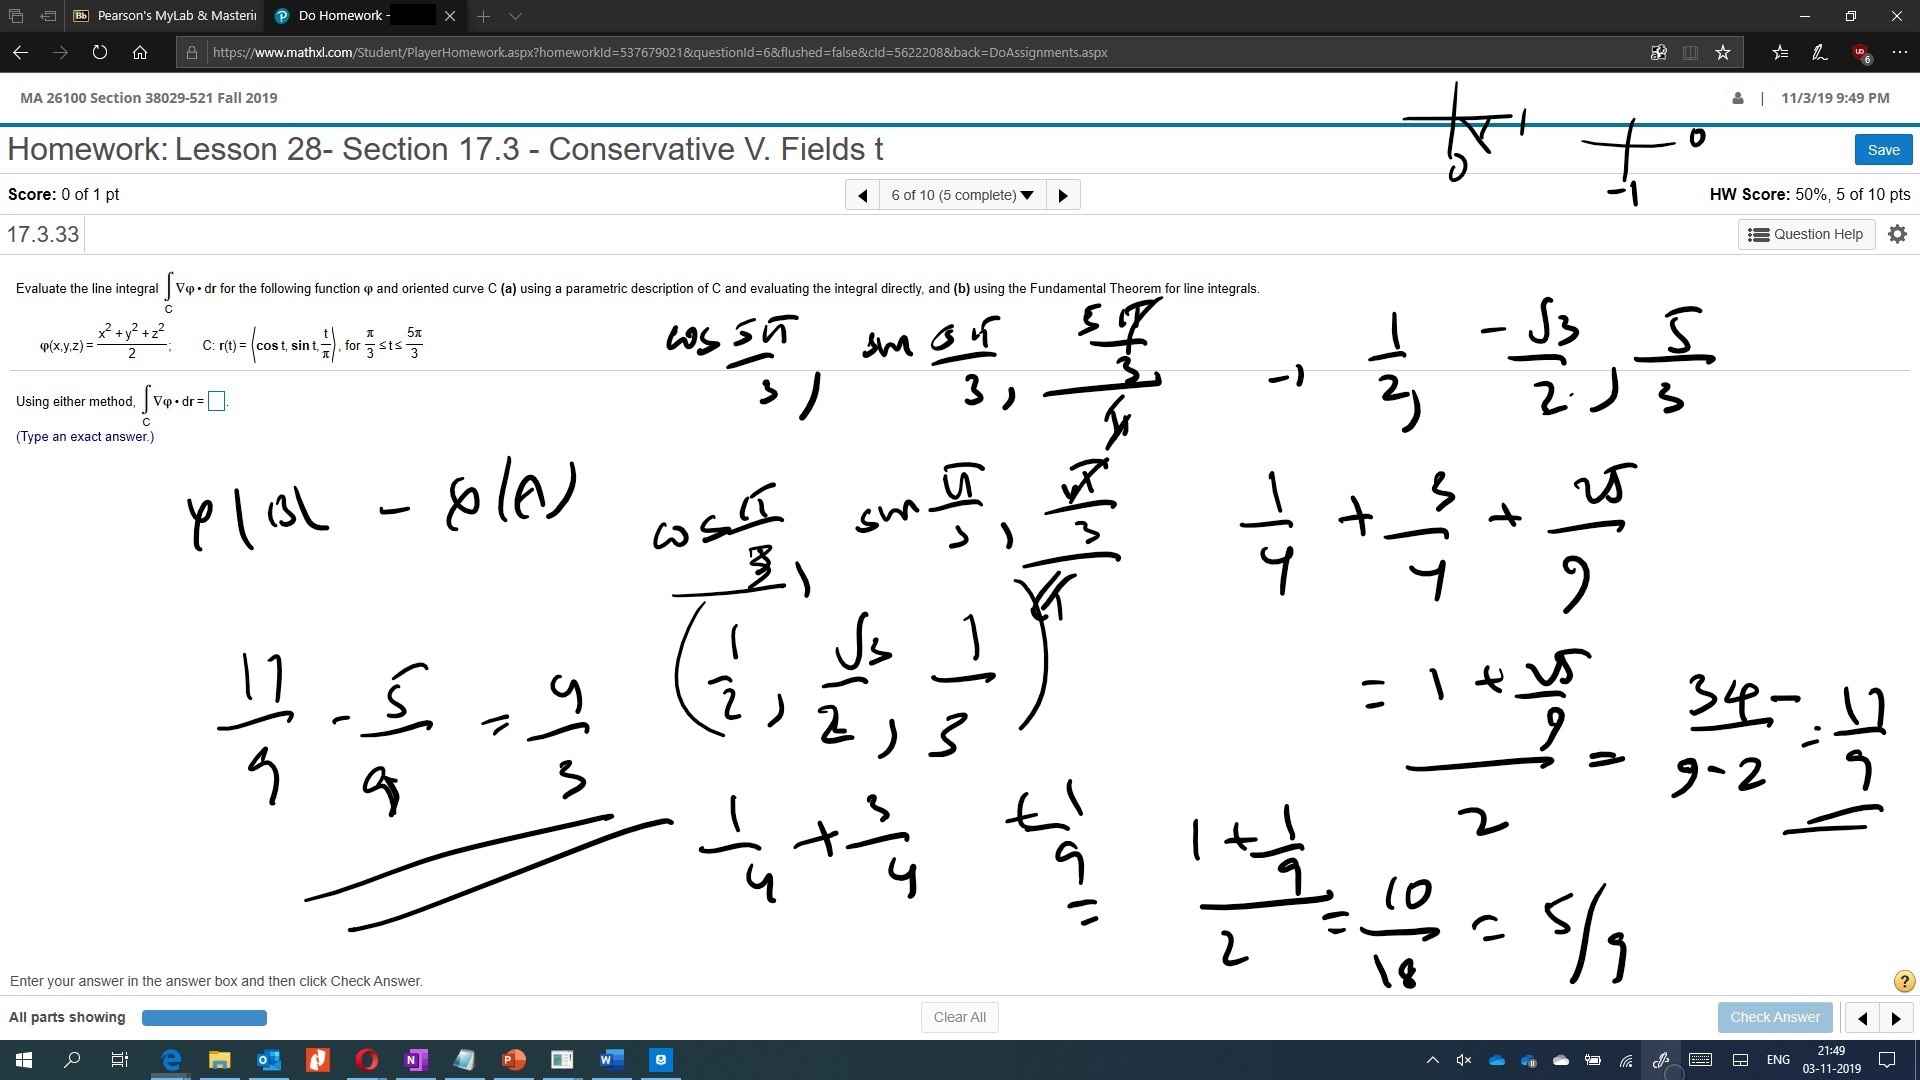 Pearson's MyLab & Masterin
Do Homework -
https://www.mathxl.com/Student/PlayerHomework.aspx?homeworkId=537679021&questionId=6&flushed=false&cId=5622208&back=DoAssignments.aspx
MA 26100 Section 38029-521 Fall 2019
| 11/3/19 9:49 PM
Homework: Lesson 28- Section 17.3 - Conservative V. Fields t
Save
Score: 0 of 1 pt
6 of 10 (5 complete)
HW Score: 50%, 5 of 10 pts
17.3.33
Question Help
1
0
0
-1
Evaluate the line integral ∫C ∇φ • dr for the following function φ and oriented curve C (a) using a parametric description of C and evaluating the integral directly, and (b) using the Fundamental Theorem for line integrals.
φ(x,y,z) = (x² + y² + z²)/2; C: r(t) = ⟨cos t, sin t, t/π⟩, for π/3 ≤ t ≤ 5π/3
cos 5π/3, sin 5π/3, (5π/3)/π
1/2, -√3/2, 5/3
Using either method, ∫C ∇φ • dr = .
(Type an exact answer.)
φ(B) - φ(A)
cos π/3, sin π/3, (π/3)/π
1/4 + 3/4 + 25/9
(1/2, √3/2, 1/3)
= (1 + 25/9)/2 = 34/9-2 = 17/9
1/4 + 3/4 + 1/9 = (1 + 1/9)/2 = 10/18 = 5/9
Enter your answer in the answer box and then click Check Answer.
?
All parts showing
Clear All
Check Answer
ENG
21:49
03-11-2019